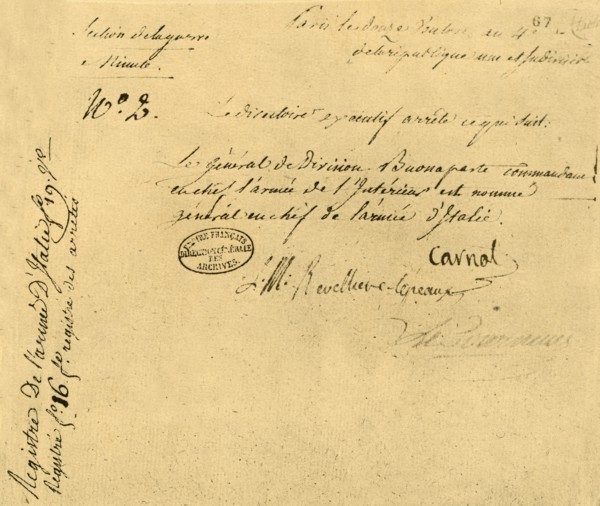 Section de la guerre
Minute.
67
Paris le douze Ventose, an 4e
de la république une et indivisible
No. 2.
Le directoire exécutif arrête ce qui suit:
Le général de Division Buonaparte commandant
en chef l'armée de l'Intérieur est nommé
général en chef de l'armée d'Italie.
Carnot
L. M. Revelliere-Lépeaux
DIRECTION GÉNÉRALE
DES
ARCHIVES.
Registre de l'armée d'Italie fo. 19
Registre fo. 16 registre des arrêtés